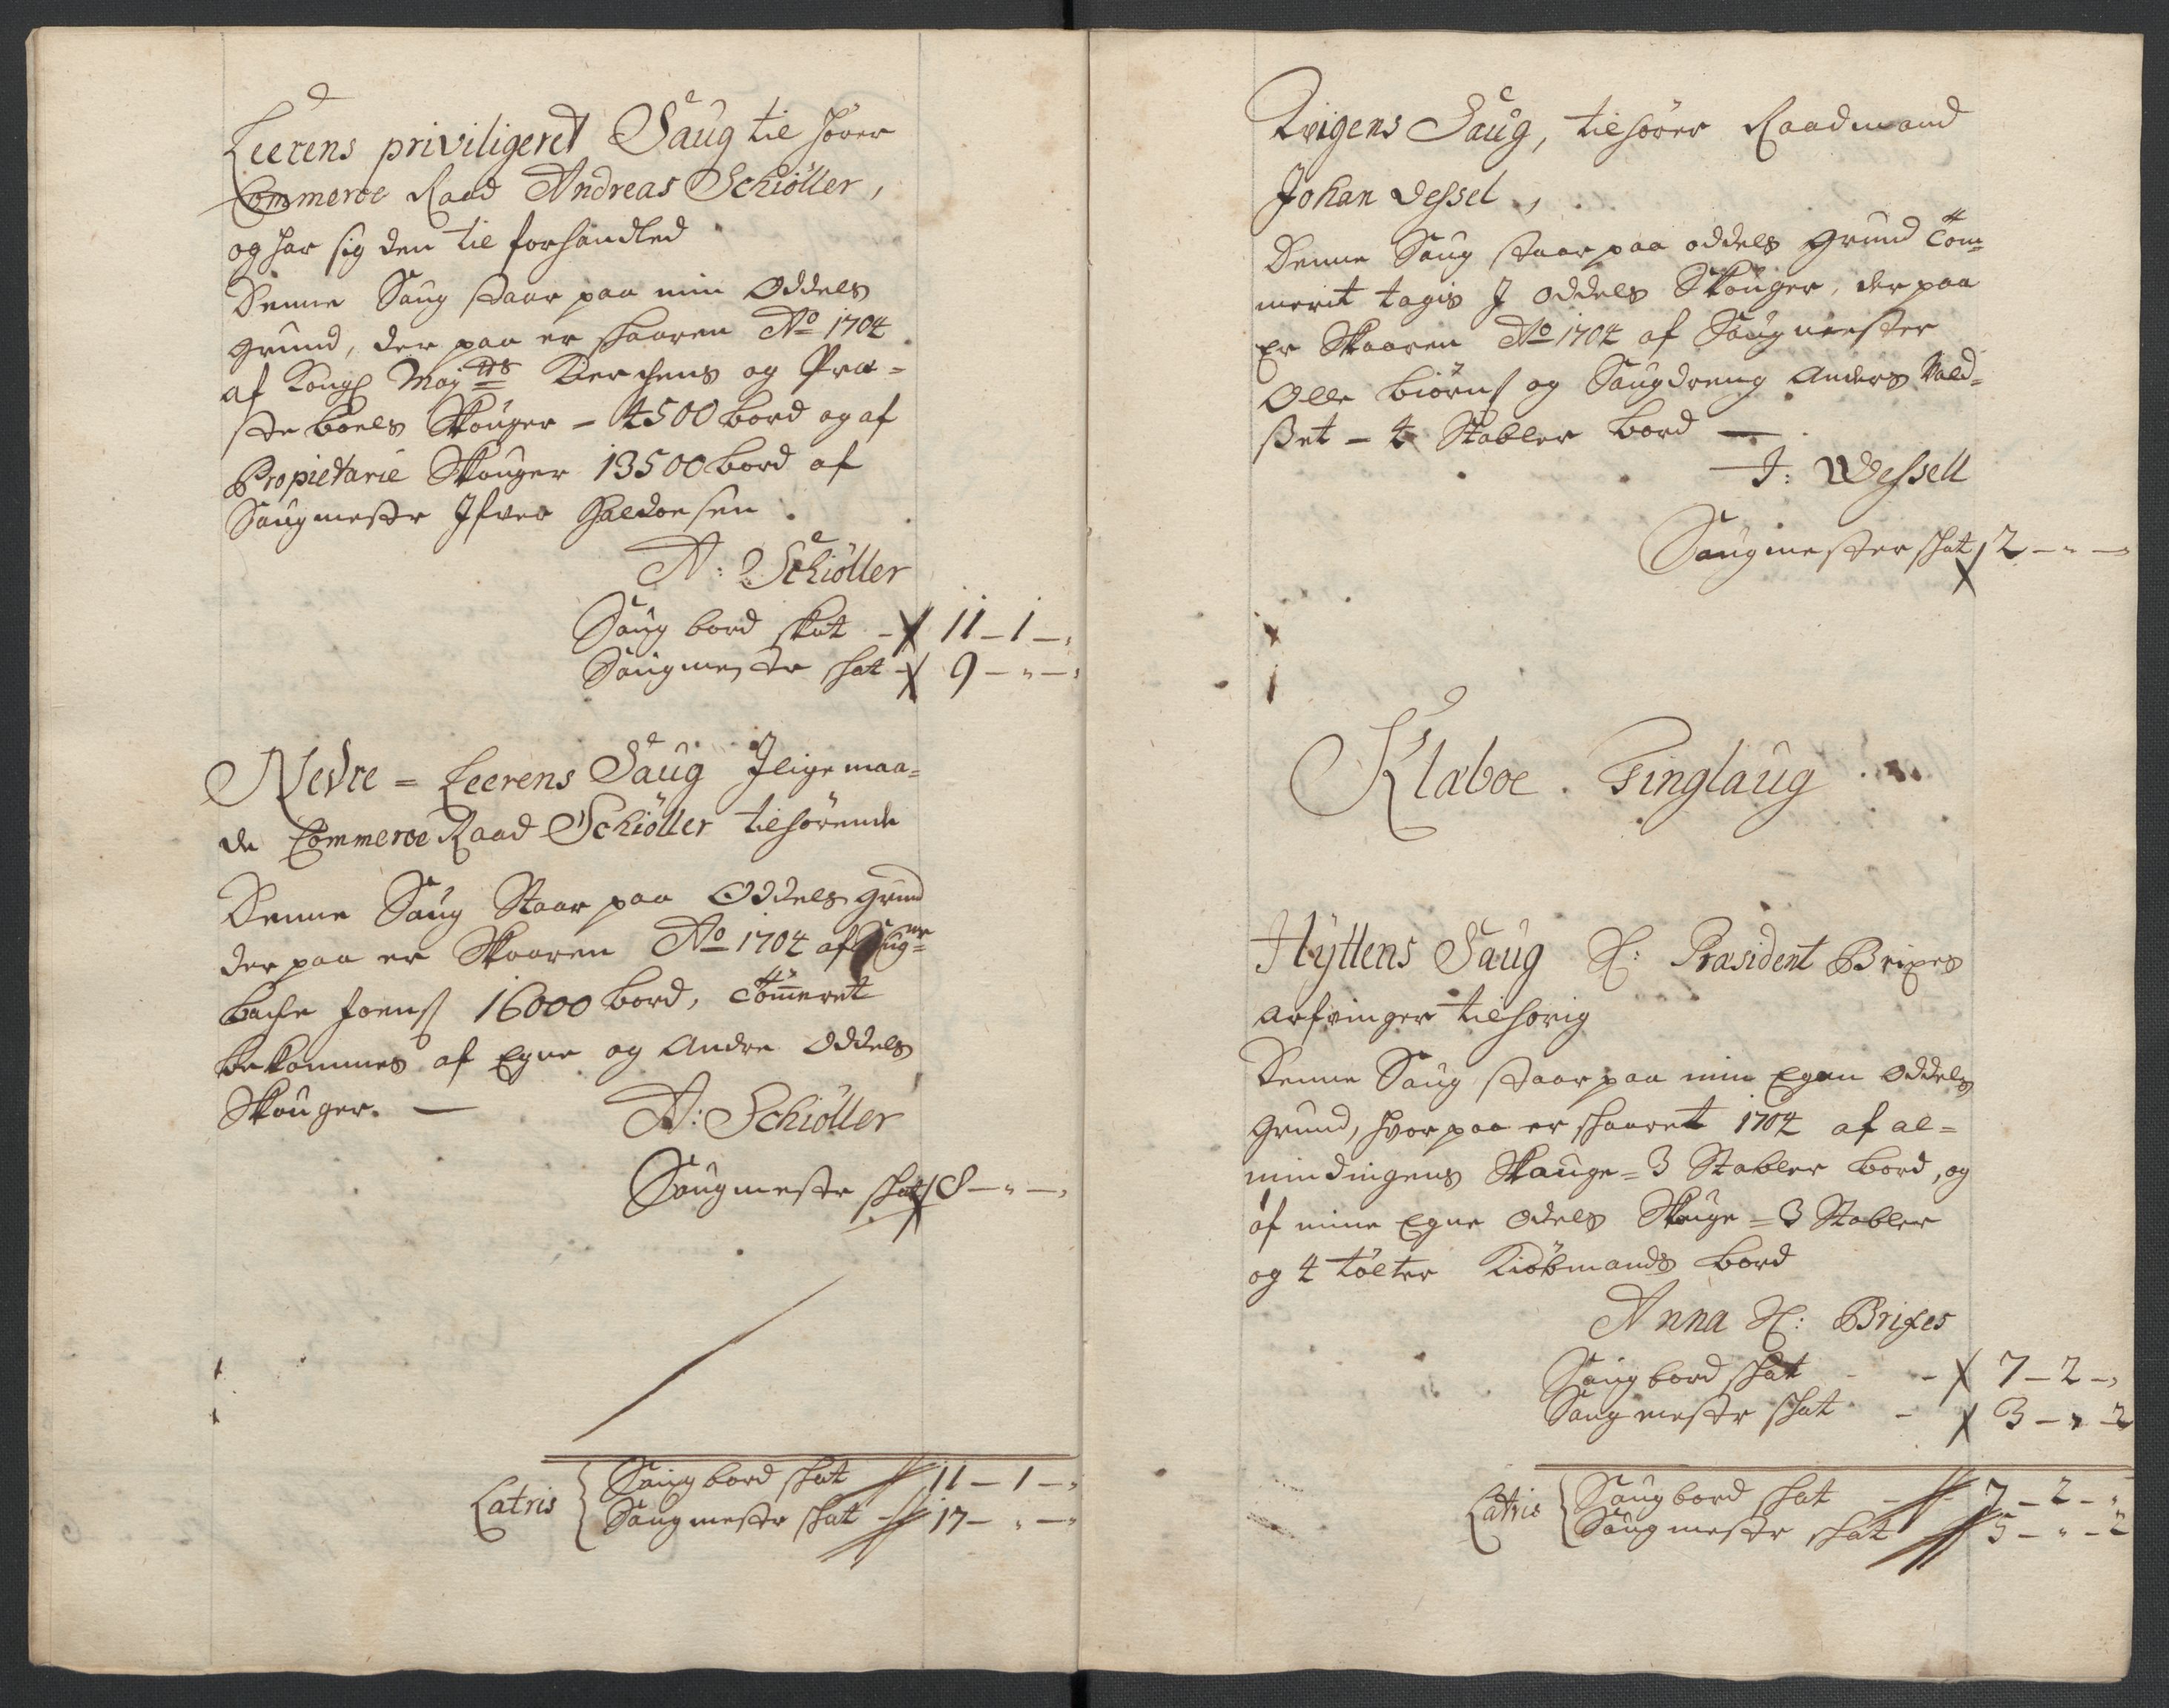 Leerens priviligeret Saug til hörer
Commerce Raad Andreas Schiöller,
og har sig den til forhandled
Denne Saug staar paa min Oddels
grund, der paa er skaaren Ao 1704
af Kongl Majts Kierchens og Præ-
ste boels Skouger - 4500 bord og af
Propietarie Skouger 13500 bord af
Saugmestr Ifver Haldorsen
A: Schiöller
Saug bord skat - 11 - 1 - "
Saugmestr skat - 9 - " - "
Nedre = Leerens Saug Ilige maa-
de Commerce Raad Schiöller tilhörende
Denne Saug Staar paa Oddels grund
der paa er Skaaren Ao 1704 af Saugmr
Bache Joens 16000 bord, Tömmeret
bekommes af Egne og Andre Oddels
Skouger. -
A: Schiöller
Saugmestr skat 8 - " - "
Latris { Saugbord skat 11 - 1 - "
Saugmestr skat - 17 - " - "
Saug, tilhörer Raadmand
Johan Wessel,
Denne Saug staar paa oddels grund Töm-
merit tagis I oddels Skouger, der paa
Er Skaaren Ao 1704 af Saugmester
Olle Biörns og Saugdreng Anders
- 4 Stabler bord -
J: Wessell
Saugmester skat 2 - " - "
Klæboe Tinglaug
Hyttens Saug H: Præsident Brixes
arfvinger tilhörig
Denne Saug staar paa min Egen oddels
grund, hvor paa er skaaret 1704 af al-
mindingens Skauge = 3 Stabler bord, og
af mine Egne odels Skouge = 3 Stabler
og 4 tölter Kiöbmands bord
Anna H: Brixes
Saugbord skat - - 7 - 2 - "
Saugmestr skat - 3 - " - 2
Latris { Saugbord skat - 7 - 2 - "
Saugmestr skat 5 - " - 2